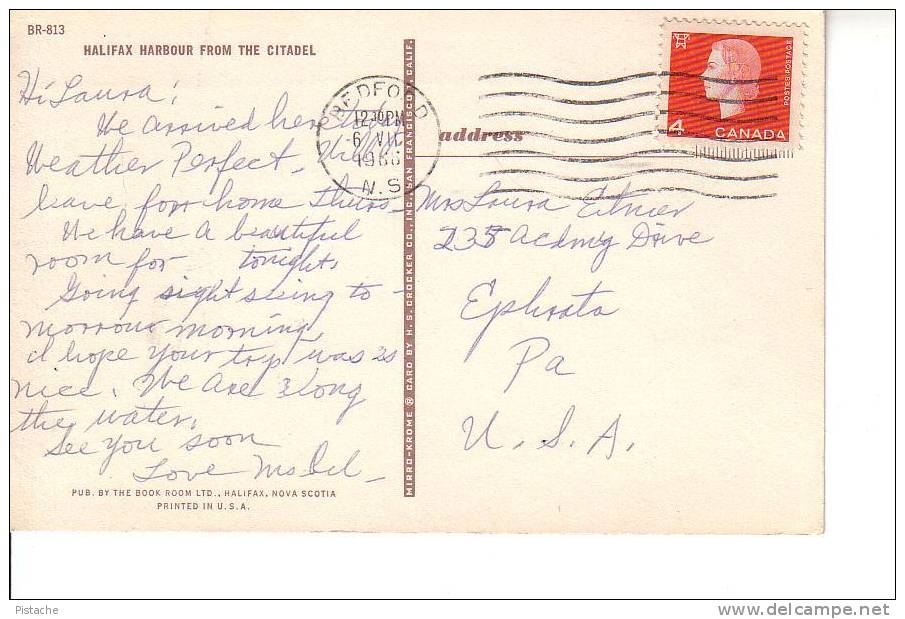 BR-813
HALIFAX HARBOUR FROM THE CITADEL
Hi Laura,
We arrived here
Weather Perfect,
leave for home Thurs
We have a beautiful
room for tonight,
Going sight seeing to-
morrow morning,
I hope your trip was as
nice. We are along
the water.
See you soon
Love Mabel
PUB. BY THE BOOK ROOM LTD., HALIFAX, NOVA SCOTIA
PRINTED IN U.S.A.
MIRRO-KROME ® CARD BY H. S. CROCKER CO., INC., SAN FRANCISCO, CALIF.
BEDFORD
12 30 PM
6 VII
196
N.S.
address
4
CANADA
POSTES·POSTAGE
Mrs Laura
235 Acdmy Drive
Ephrata
Pa
U.S.A.
Pistache
www.delcampe.net